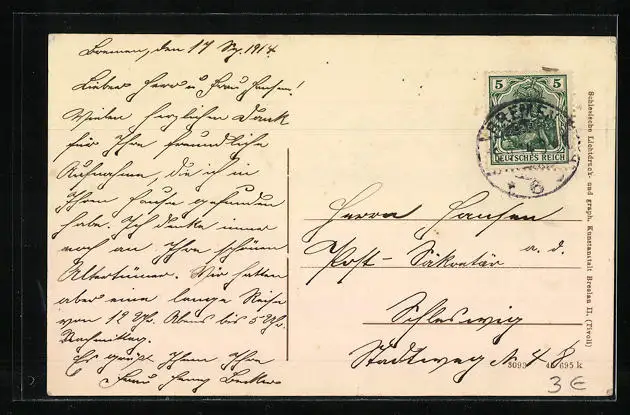 Bremen, den 17 Sep. 1914
Lieber Herr u Frau Hansen!
Vielen herzlichen Dank
für Ihre freundliche
Aufnahme, die ich in
Ihrem Hause gefunden
habe. Ich denke immer
noch an Ihre schönen
Altertümer. Wir hatten
aber eine lange Reise
von 12 Uhr. Abens bis 5 Uhr
Nachmittag.
Es grüßt Ihnen Ihre
Frau Henny Becker
5 5
BREMEN
DEUTSCHES REICH
* 6
Herrn Hansen
Post-Sekretär a. d.
Schleswig
Stadtweg № 48
3093 695 k
3€
Schlesische Lichtdruck- und graph. Kunstanstalt Breslau II, (Tivoli)